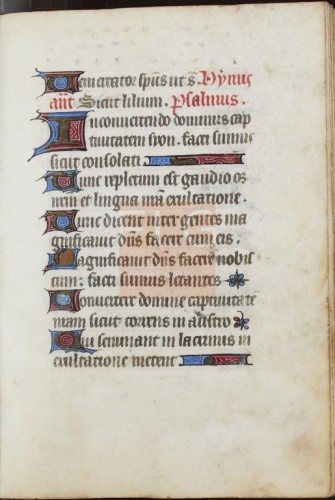 Veni creator sp̄us ut s̄. Hymnꝰ
añt Sicut lilium. Psalmus.
In convertendo dominus cap
tivitatem syon. facti sumus
sicut consolati.
Tunc repletum est gaudio os
n̄rm et lingua n̄ra exultatione.
Tunc dicent inter gentes ma
gnificavit dn̄s facere cum eis.
Magnificavit dn̄s facere nobis
cum: facti sumus letantes
Convertere domine captivitatē
n̄ram sicut torrens in austro
Qui seminant in lacrimis in
exultatione metent